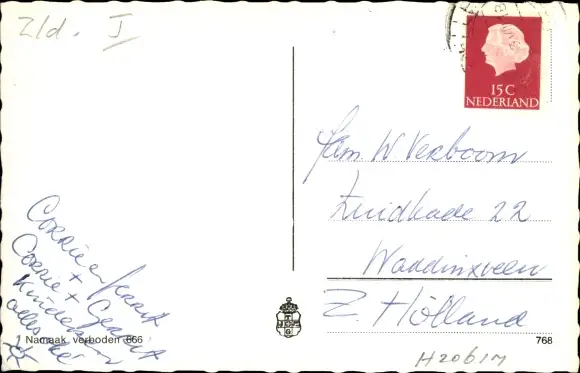 Z/d. I
15 C
NEDERLAND
Fam. W Verboom
Zuidkade 22
Waddinxveen
Z. Holland
Corrie + Gerrit
Corrie + Gerrit
Kinderen
Namaak verboden 666
768
H20617